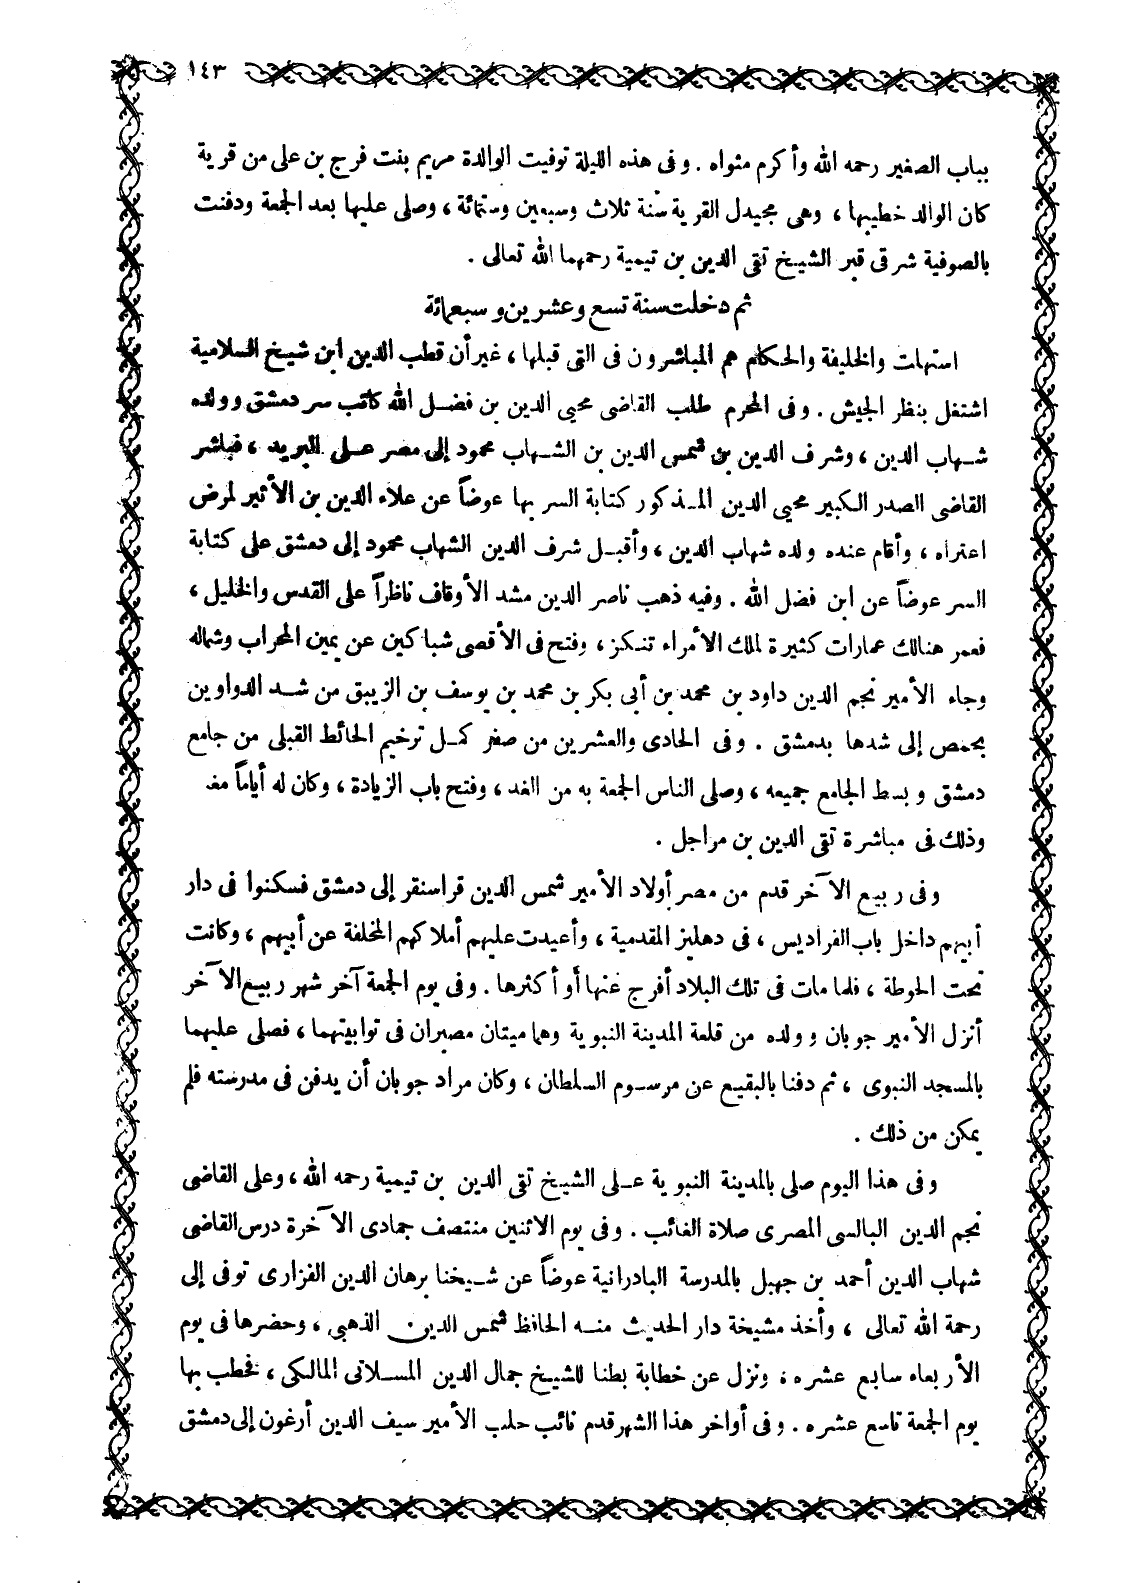 ١٤٣
بباب الصغير رحمه الله وأكرم مثواه . وفى هذه الليلة توفيت الوالدة مريم بنت فرج بن على من قرية
كان الوالد خطيبها ، وهى مجيدل القرية سنة ثلاث وسبعين وستمائة ، وصلى عليها بعد الجمعة ودفنت
بالصوفية شرقى قبر الشيخ تقى الدين بن تيمية رحمهما الله تعالى .
ثم دخلت سنة تسع وعشرين وسبعمائة
استهلت والخليفة والحكام هم المباشرون فى التى قبلها ، غير أن قطب الدين ابن شيخ السلامية
اشتغل بنظر الجيش . وفى المحرم طلب القاضى محيى الدين بن فضل الله كاتب سر دمشق وولده
شهاب الدين ، وشرف الدين بن شمس الدين بن الشهاب محمود إلى مصر على البريد ، فباشر
القاضى الصدر الكبير محيى الدين المذكور كتابة السر بها عوضاً عن علاء الدين بن الأثير لمرض
اعتراه ، وأقام عنده ولده شهاب الدين ، وأقبل شرف الدين الشهاب محمود إلى دمشق على كتابة
السر عوضاً عن ابن فضل الله . وفيه ذهب ناصر الدين مشد الأوقاف ناظراً على القدس والخليل ،
فعمر هنالك عمارات كثيرة لملك الأمراء تنكز ، وفتح فى الأقصى شباكين عن يمين المحراب وشماله
وجاء الأمير نجم الدين داود بن محمد بن أبى بكر بن محمد بن يوسف بن الزيبق من شد الدواوين
بحمص إلى شدها بدمشق . وفى الحادى والعشرين من صفر كمل ترخيم الحائط القبلى من جامع
دمشق وبسط الجامع جميعه ، وصلى الناس الجمعة به من الغد ، وفتح باب الزيادة ، وكان له أياماً مغـ
وذلك فى مباشرة تقى الدين بن مراجل .
وفى ربيع الآخر قدم من مصر أولاد الأمير شمس الدين قراسنقر إلى دمشق فسكنوا فى دار
أبيهم داخل باب الفراديس ، فى دهليز المقدمية ، وأعيدت عليهم أملاكهم المخلفة عن أبيهم ، وكانت
تحت الحوطة ، فلما مات فى تلك البلاد أفرج عنها أو أكثرها . وفى يوم الجمعة آخر شهر ربيع الآخر
أنزل الأمير جوبان وولده من قلعة المدينة النبوية وهما ميتان مصبران فى توابيتهما ، فصلى عليهما
بالمسجد النبوى ، ثم دفنا بالبقيع عن مرسوم السلطان ، وكان مراد جوبان أن يدفن فى مدرسته فلم
يمكن من ذلك .
وفى هذا اليوم صلى بالمدينة النبوية على الشيخ تقى الدين بن تيمية رحمه الله ، وعلى القاضى
نجم الدين البالسى المصرى صلاة الغائب . وفى يوم الاثنين منتصف جمادى الآخرة درس القاضى
شهاب الدين أحمد بن جهبل بالمدرسة البادرانية عوضاً عن شيخنا برهان الدين الفزارى توفى إلى
رحمة الله تعالى ، وأخذ مشيخة دار الحديث منه الحافظ شمس الدين الذهبى ، وحضرها فى يوم
الأربعاء سابع عشره ، ونزل عن خطابة بطنا للشيخ جمال الدين المسلاتى المالكى ، فخطب بها
يوم الجمعة تاسع عشره . وفى أواخر هذا الشهر قدم نائب حلب الأمير سيف الدين أرغون إلى دمشق